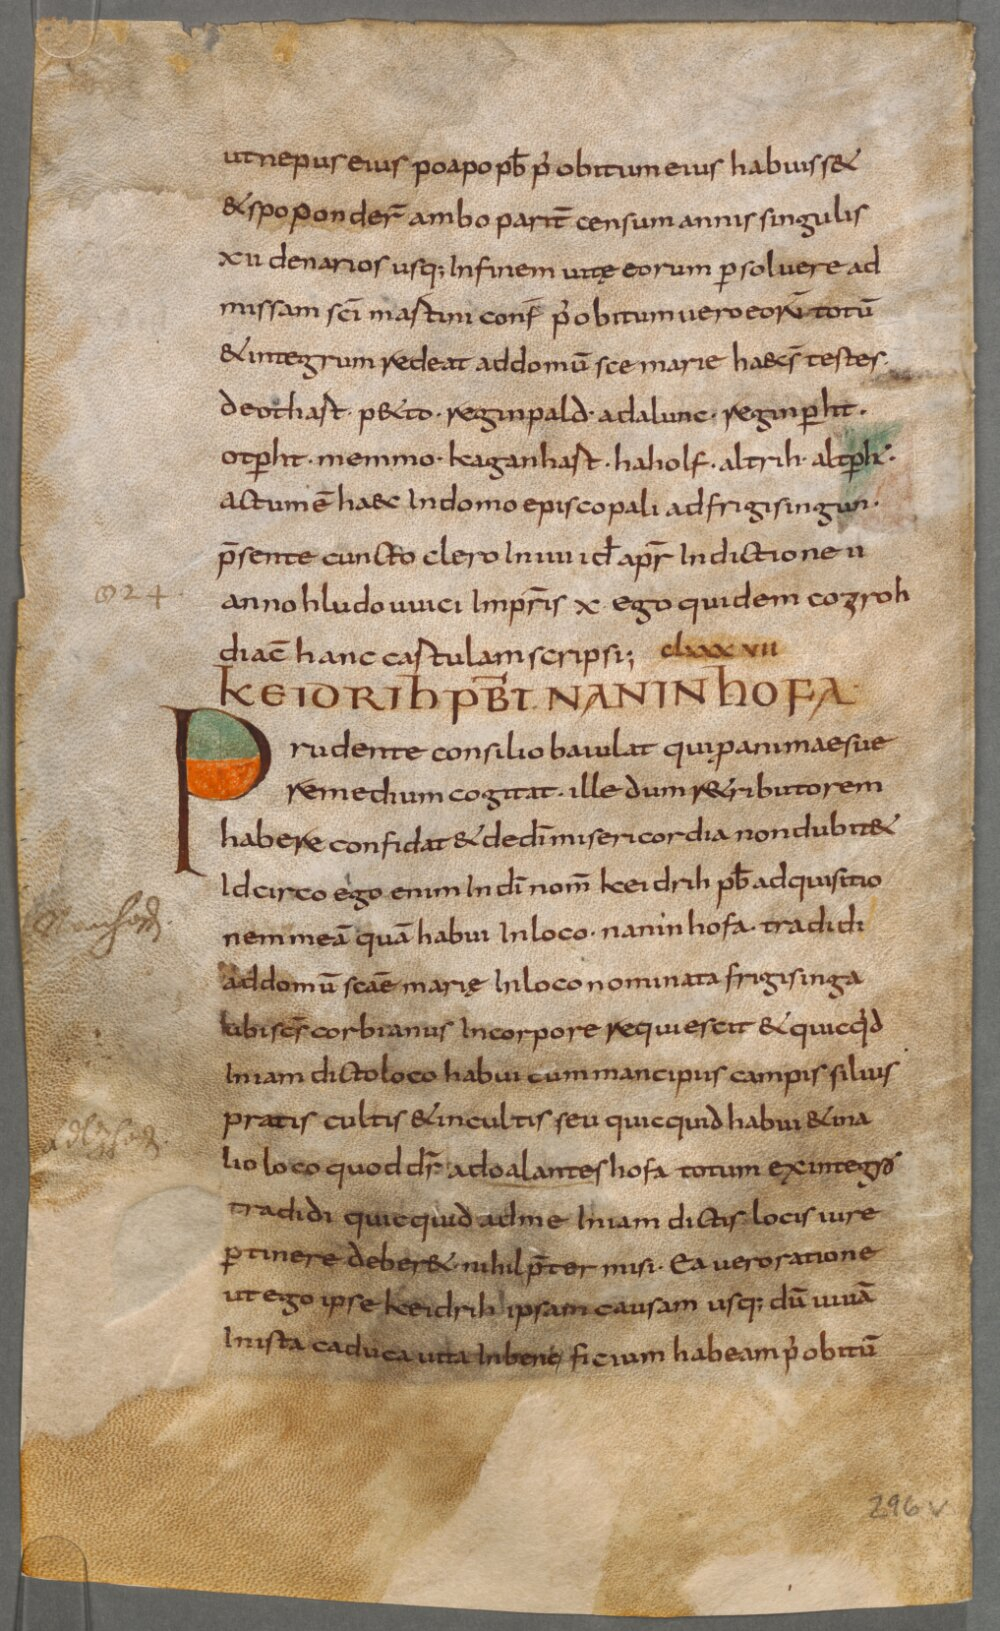 ut nepus eius poapo pb̄ p̄ obitum eius habuiss&
& spoponder̄ ambo parit̄ censum annis singulis
xii denarios usq; In finem uitę eorum p̱soluere ad
missam sc̄i martini conf̄ p̄ obitum uero eorū totū
& integrum redeat ad domū sc̄e marie haec s̄ testes.
deothart. p&to. reginpald. adalunc. reginp̱ht.
otp̱ht. memmo. kaganhart. haholf. altrih. altp̱h̄t.
actum ē haec In domo episcopali ad frigisingun.
p̄sente cuncto clero In uii id̄ apr̄ Indictione ii
824
anno hludouuici Imp̄ris x. ego quidem cozroh
diac̄ hanc cartulam scripsi; clxxxvii
KEIDRIH PB̄T. NANINHOFA.
Prudente consilio baiulat qui p̱ animae sue
remedium cogitat. ille dum r&ributorem
habere confidat & de dī misericordia non dubit&
Idcirco ego enim In dī nom̄ keidrih pb̄ adquisitio
nem meā quā habui In loco. naninhofa. tradidi
ad domū scāe marię In loco nominata frigisinga
ubi sc̄s corbianus In corpore requiescit & quicq̇d
In iam dicto loco habui cum mancipiis campis siluis
pratis cultis & incultis seu quicquid habui & in a
lio loco quod dr̄ adoalanteshofa totum ex integro
tradidi quicquid ad me In iam dictis locis iure
p̱tinere deber& nihil p̄ter misi. Ea uero ratione
ut ego ipse keidrih ipsam causam usq; dū uiuā
In ista caduca uita In beneficium habeam p̄ obitū
296 v